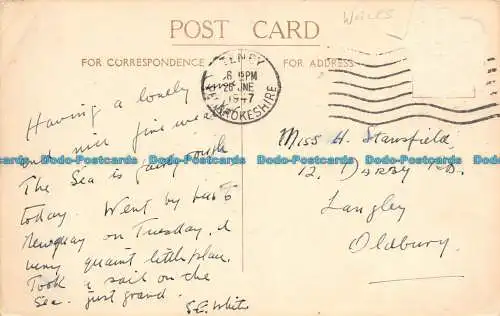 POST CARD
Wales
FOR CORRESPONDENCE
FOR ADDRESS
TENBY
6 15 PM
26 JNE
1947
PEMBROKESHIRE
Having a lovely time
and nice fine wea
The Sea is fairly rough
today. Went by bus to
Newquay on Tuesday. A
very quaint little place.
Took a sail on the
Sea. just grand.
S.E. White
Miss H. Stansfield,
12, DARBY RD.
Langley
Oldbury.
Dodo-Postcards Dodo-Postcards Dodo-Postcards Dodo-Postcards Dodo-Postcards Dodo-Postcards